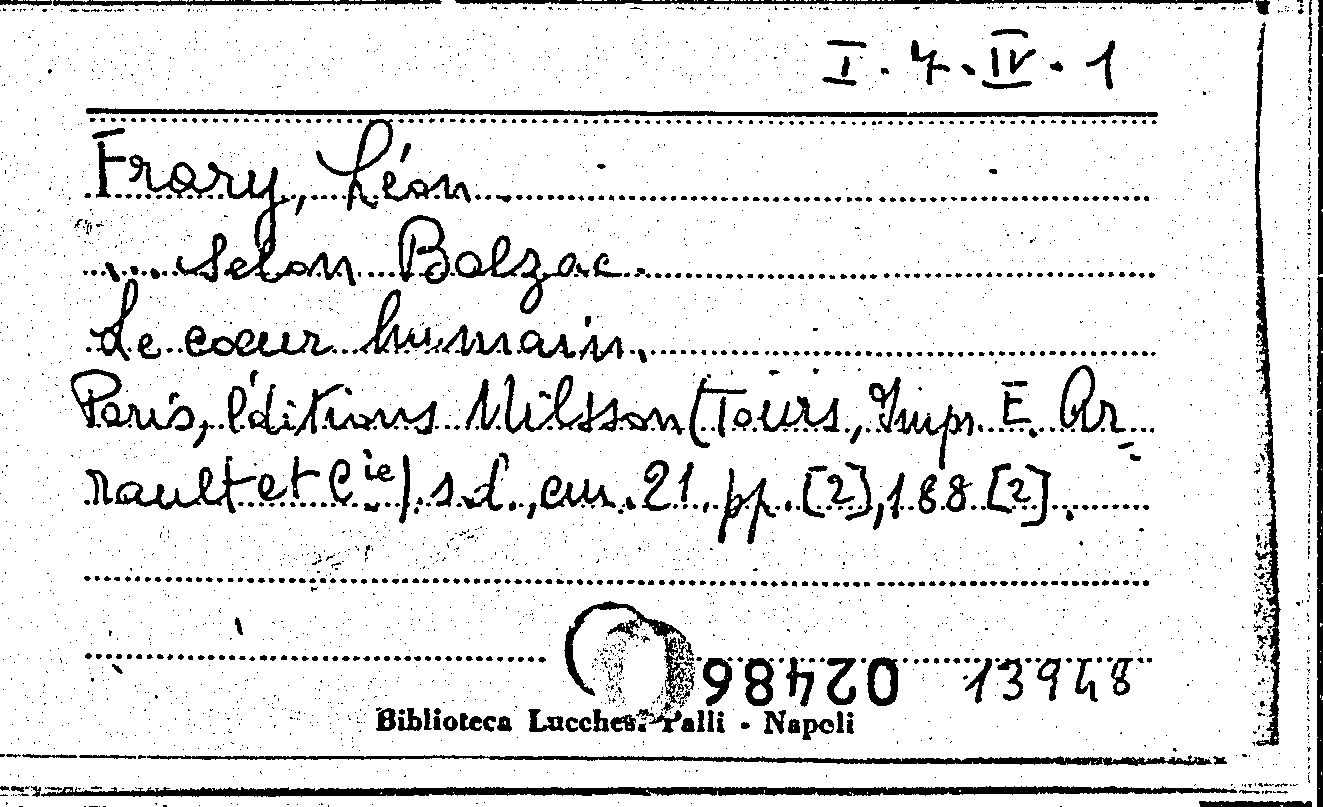 I. 4. IV. 1
Frary, Léon.
... selon Balzac.
Le cœur humain.
Paris, éditions Nilsson (Tours, Imp. E. Ar=
rault et Cie). s.d., cm. 21. pp. [2], 188 [2].
02486 13948
Biblioteca Lucches. Palli - Napoli